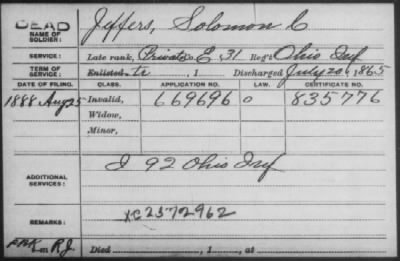 DEAD
NAME OF SOLDIER: Jeffers, Solomon C
SERVICE: Late rank, Private Co. E, 31 Reg't Ohio Inf
TERM OF SERVICE: Enlisted tr , 1 Discharged July 20, 1865
DATE OF FILING. CLASS. APPLICATION NO. LAW. CERTIFICATE NO.
1888 Aug 25 Invalid, 669696 o 835776
Widow,
Minor,
ADDITIONAL SERVICES: I 92 Ohio Inf
REMARKS: XC2572962
Died , 1 , at